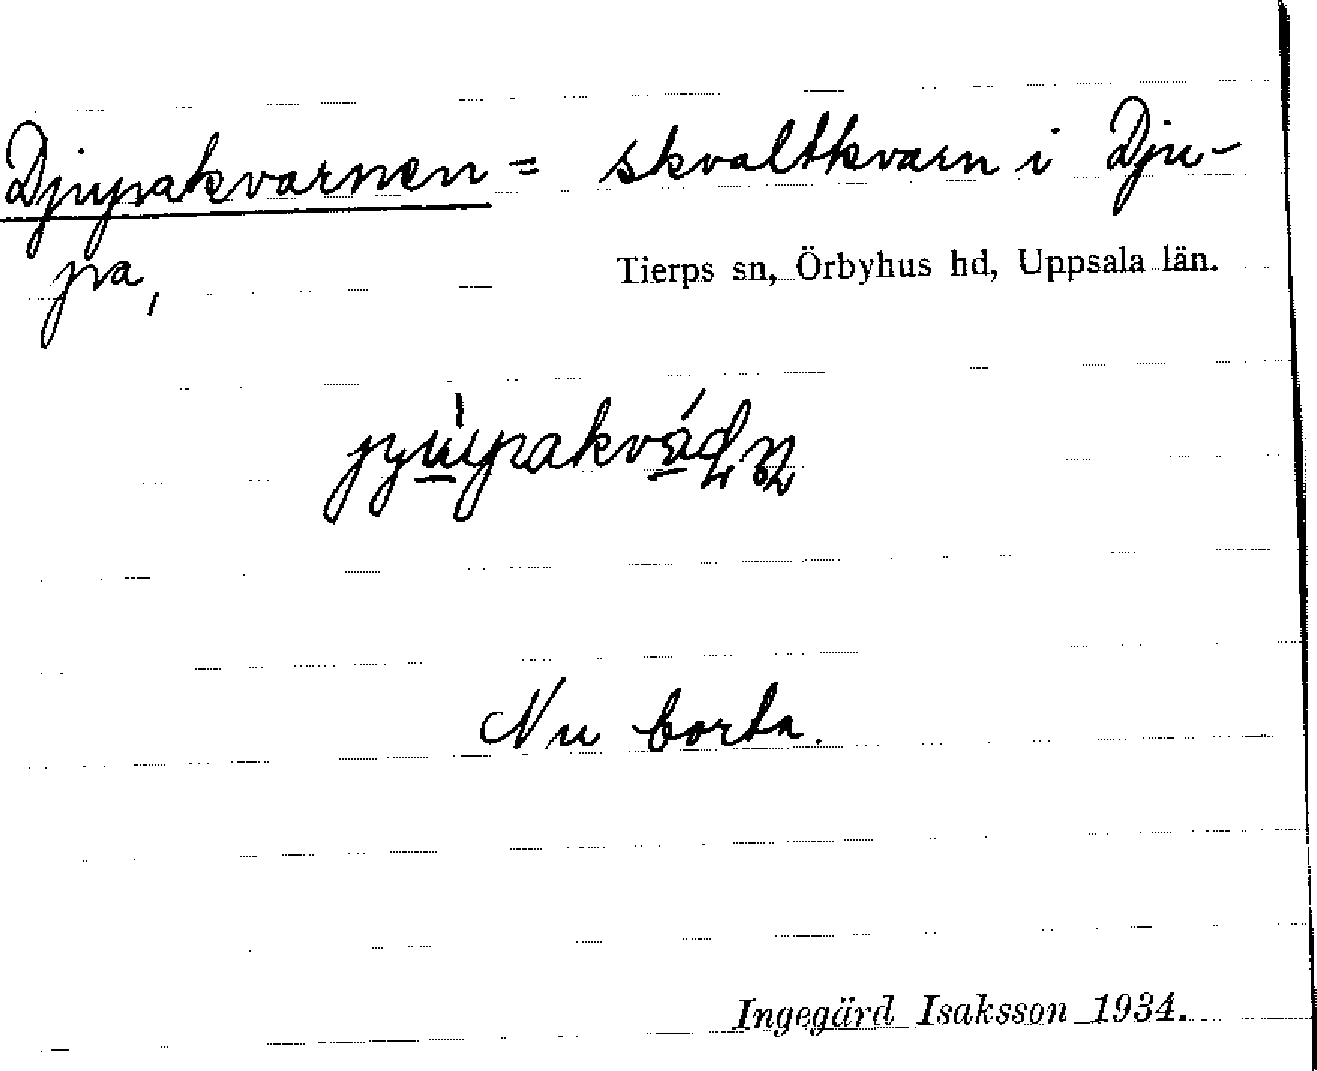 Djupakvarnen = skvaltkvarn i Dju-
pa,
Tierps sn, Örbyhus hd, Uppsala län.
Nu borta.
Ingegärd Isaksson 1934.